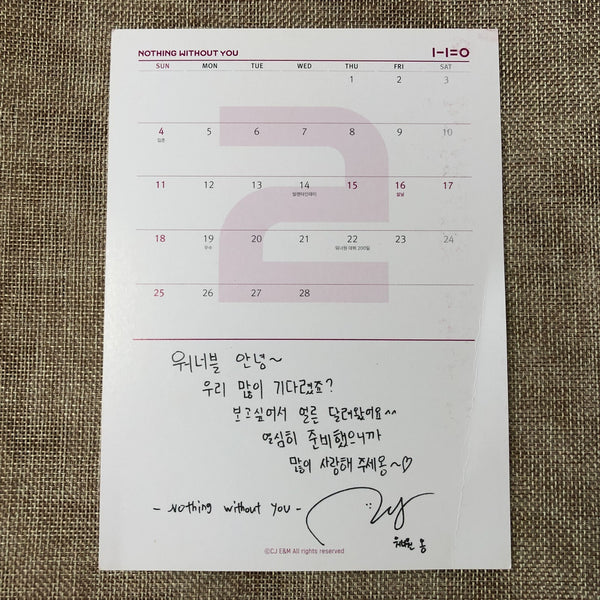 NOTHING WITHOUT YOU 1-1=0
SUN MON TUE WED THU FRI SAT
1 2 3
4 5 6 7 8 9 10
입춘
11 12 13 14 15 16 17
발렌타인데이 설날
18 19 20 21 22 23 24
우수 워너원 데뷔 200일
25 26 27 28
워너블 안녕~
우리 많이 기다렸죠?
보고싶어서 얼른 달려왔어요^^
열심히 준비했으니까
많이 사랑해 주세용~♡
- Nothing without you -
워너원 옹
©CJ E&M All rights reserved